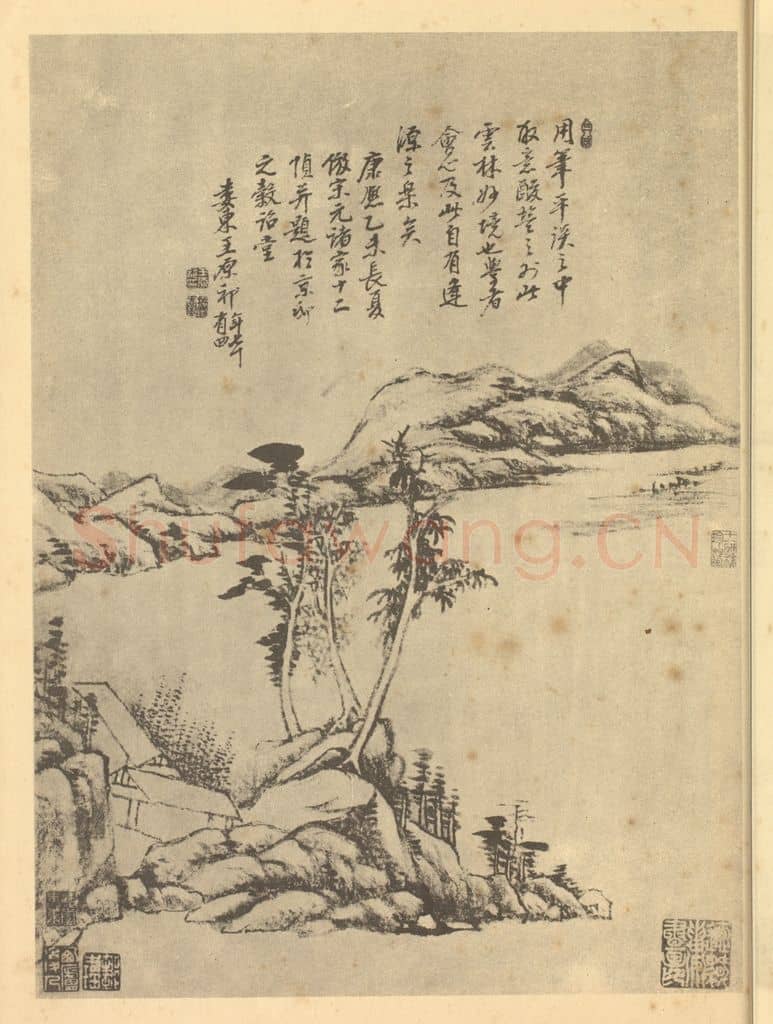 用筆平淡之中
取意酸醎之外此
雲林妙境也學者
會心及此自有逢
源之樂矣
康熙乙未長夏
倣宋元諸家十二
幀并題於京邸
之穀詒堂
婁東王原祁年七十有四
Shufawang.CN